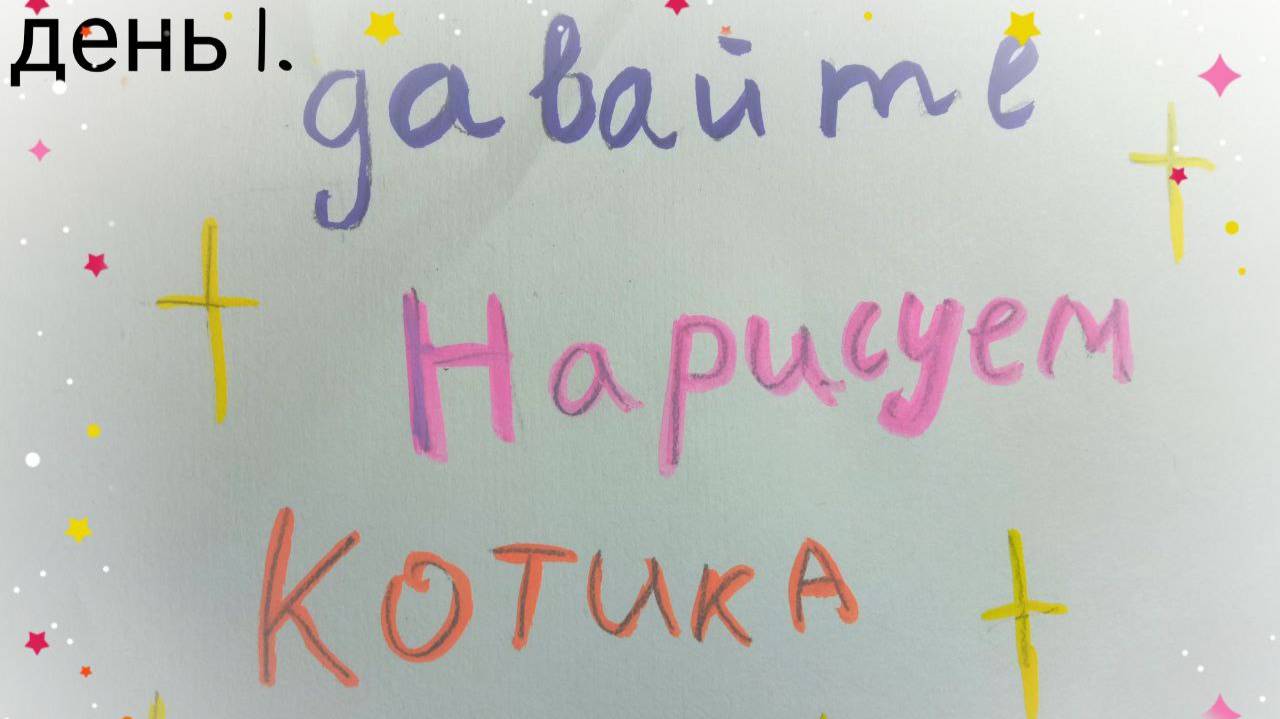 день 1.
давайте
Нарисуем
Котика